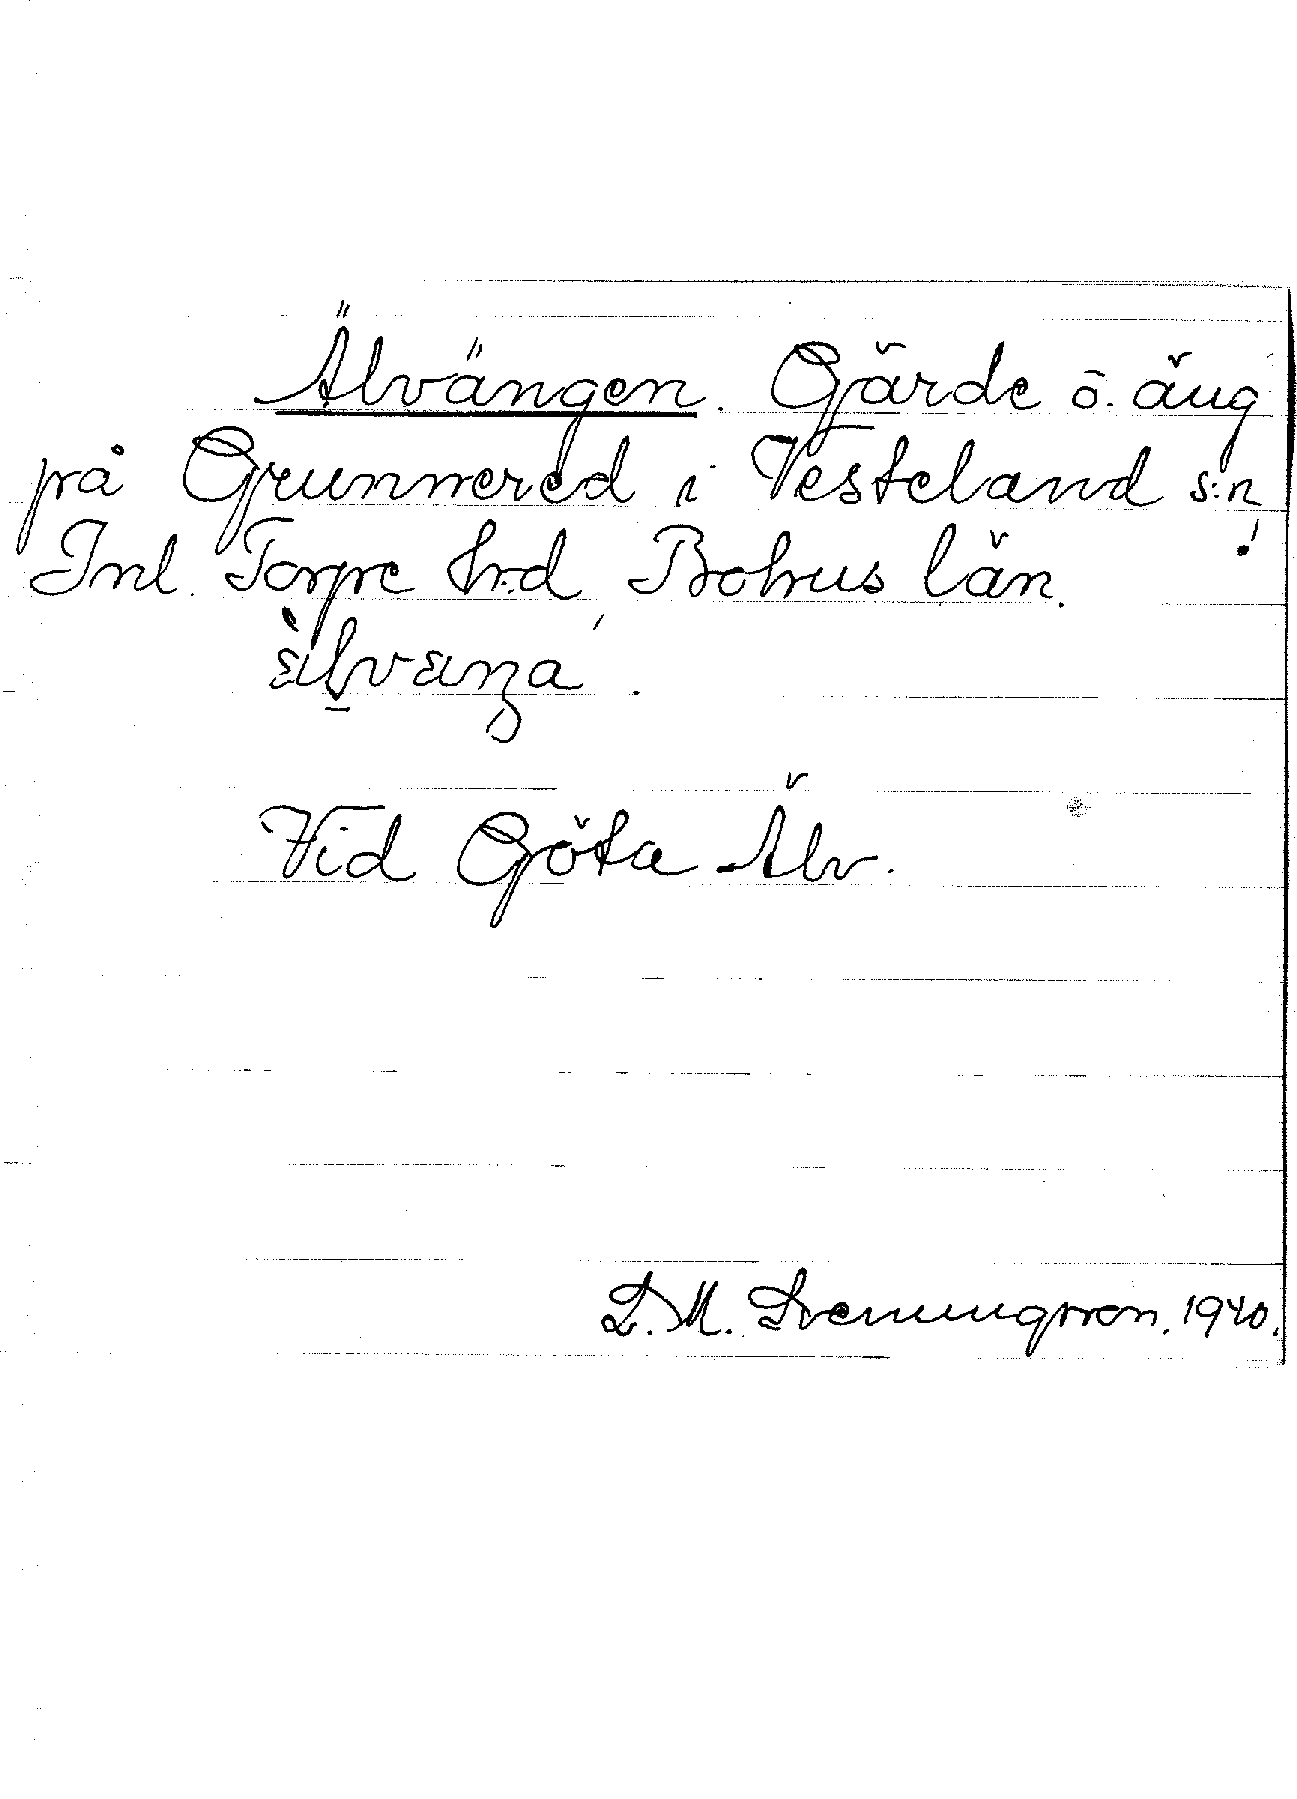 Älvängen. Gärde o. äng
på Grunnered i Vesteland s:n,
Inl. Torpe hrd, Bohus län.
Vid Göta Älv.
L. M. Svenungsson. 1940.